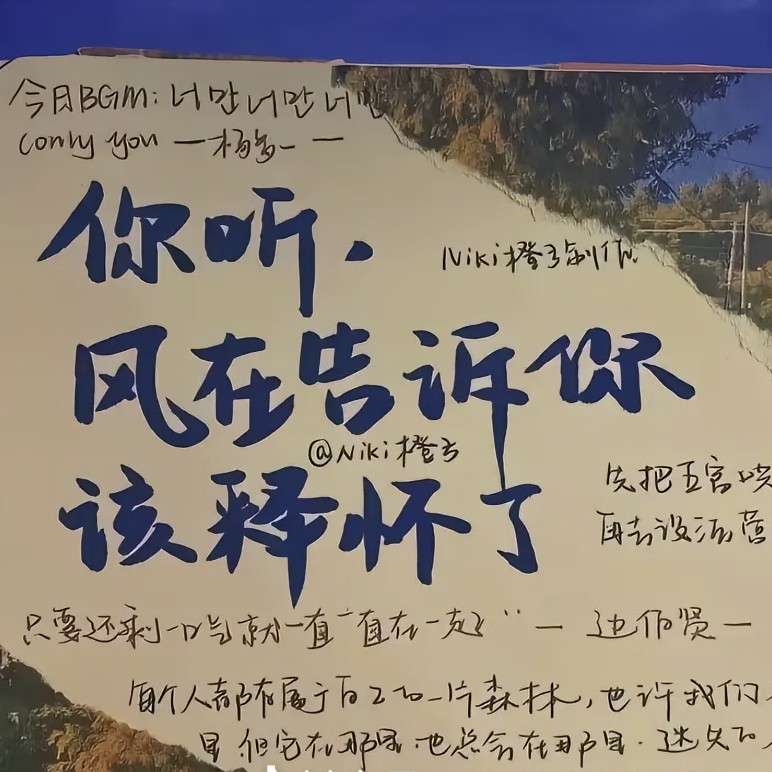 今日BGM: 너만 너만 너만
(only you 一杨多一 一
你听.
Niki橙子制作
风在告诉你
@Niki橙子
该释怀了
先把五官哄
再去设法营
只要还剩一口气就一直一直在一起" 一 边伯贤 一
每个人都有属于自己的一片森林,也许我们
但它在那里.也总会在那里.迷失的